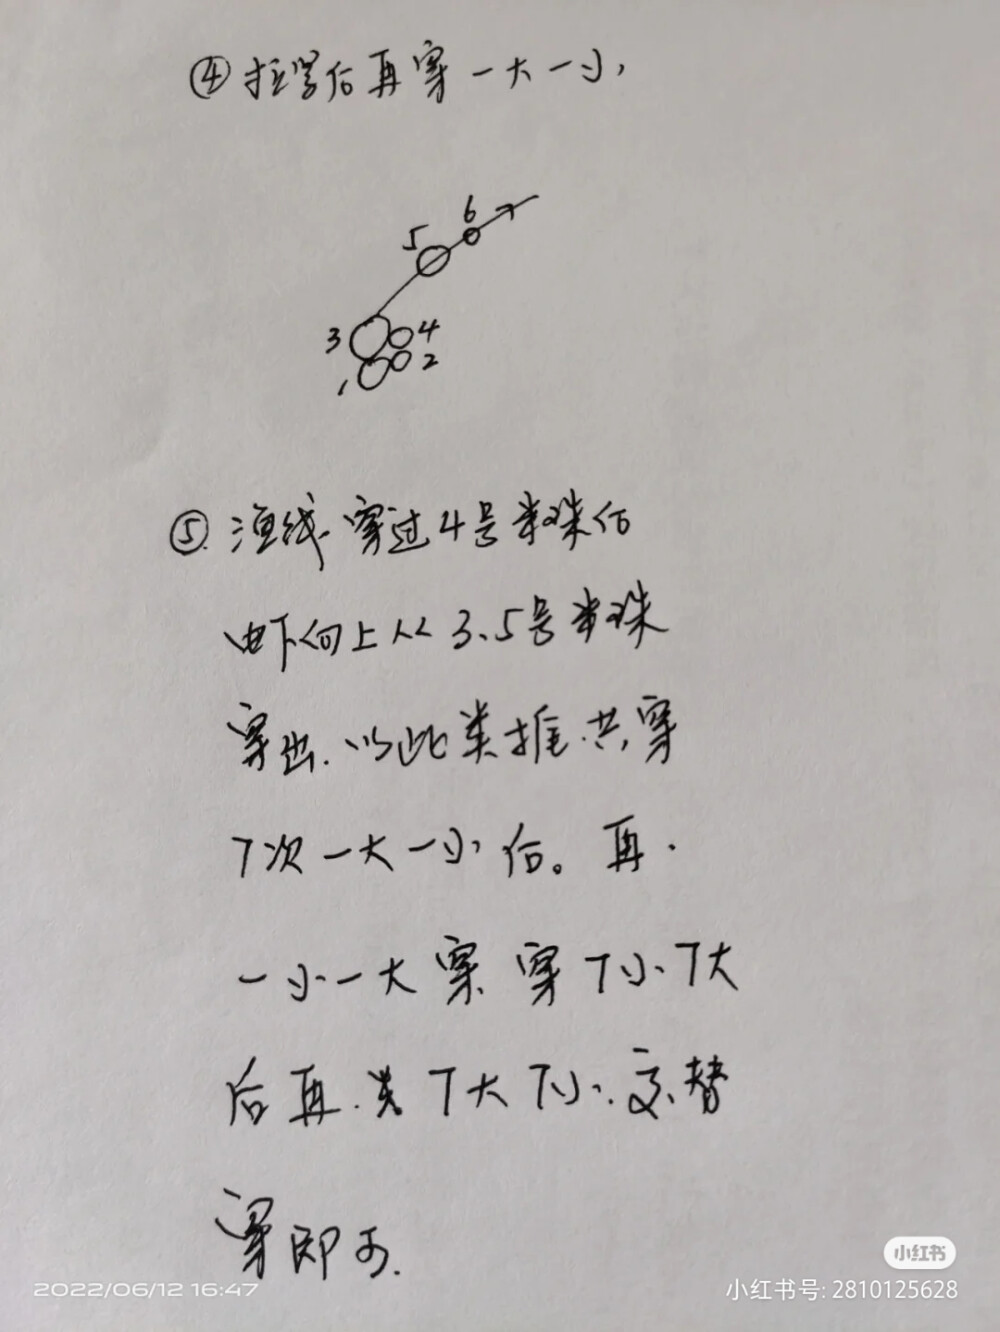 ④拉紧后再穿一大一小,
6
5
3 4
1 2
⑤.渔线穿过4号米珠后
由下向上从3、5号米珠
穿出.以此类推.共穿
7次一大一小后。再.
一小一大穿.穿7小7大
后再.7大7小.交替
穿即可.
小红书
2022/06/12 16:47
小红书号: 2810125628